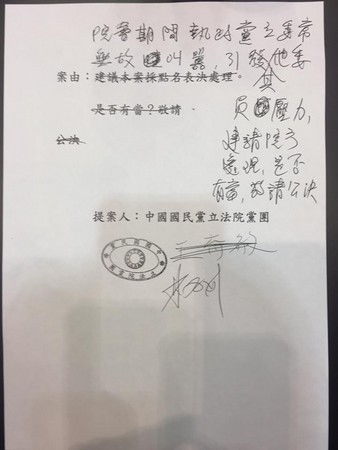 院會期間執政黨立委常
無故叫囂,引發其他委
案由:建議本案採點名表決處理。
是否有當?敬請
公決
員壓力,
建請院方
處理,是否
有當,敬請公決
提案人:中國國民黨立法院黨團